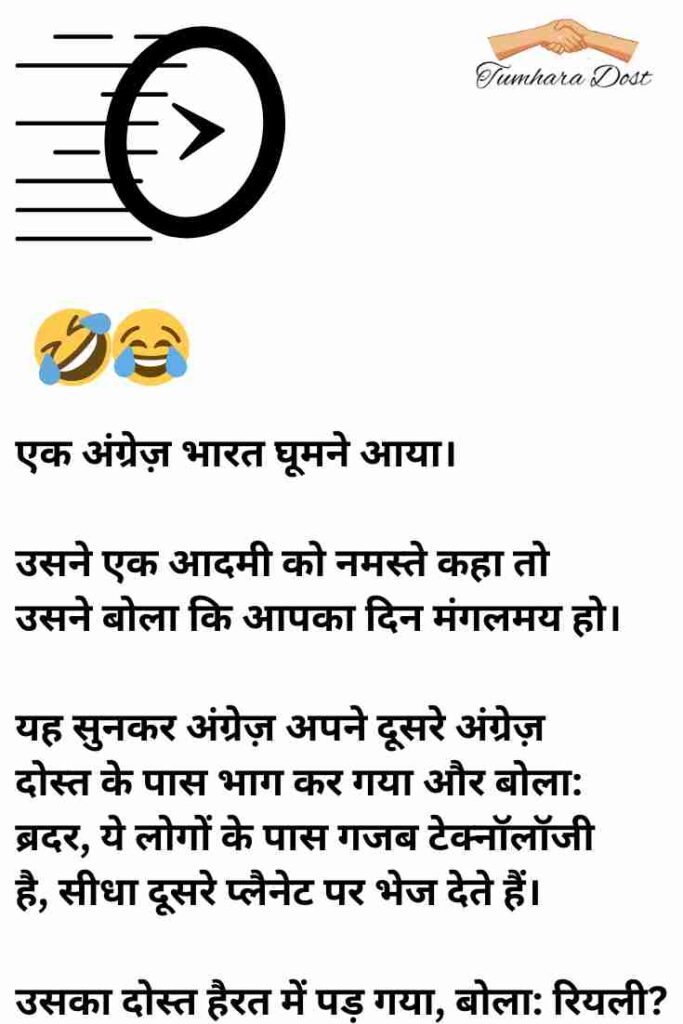 Tumhara Dost
एक अंग्रेज़ भारत घूमने आया।
उसने एक आदमी को नमस्ते कहा तो
उसने बोला कि आपका दिन मंगलमय हो।
यह सुनकर अंग्रेज़ अपने दूसरे अंग्रेज़
दोस्त के पास भाग कर गया और बोला:
ब्रदर, ये लोगों के पास गजब टेक्नॉलॉजी
है, सीधा दूसरे प्लैनेट पर भेज देते हैं।
उसका दोस्त हैरत में पड़ गया, बोला: रियली?